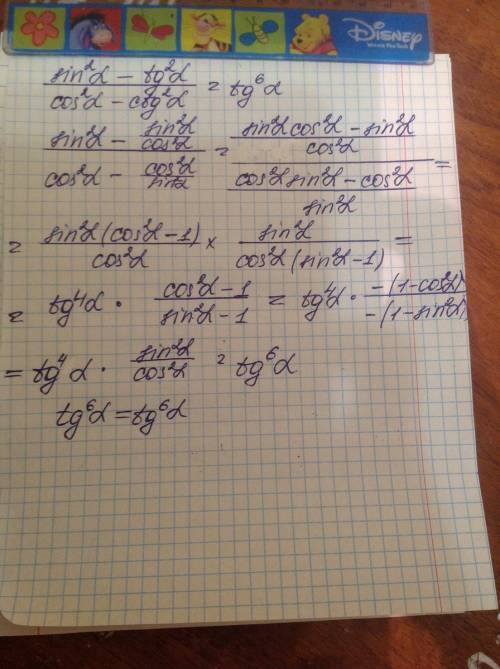 Disney
Winnie the Pooh
(sin²α − tg²α)/(cos²α − ctg²α) = tg⁶α
(sin²α − sin²α/cos²α)/(cos²α − cos²α/sin²α) = ((sin²α cos²α − sin²α)/cos²α)/((cos²α sin²α − cos²α)/sin²α) =
= sin²α(cos²α−1)/cos²α × sin²α/(cos²α(sin²α−1)) =
= tg⁴α · (cos²α−1)/(sin²α−1) = tg⁴α · −(1−cos²α)/−(1−sin²α)
= tg⁴α · sin²α/cos²α = tg⁶α
tg⁶α = tg⁶α